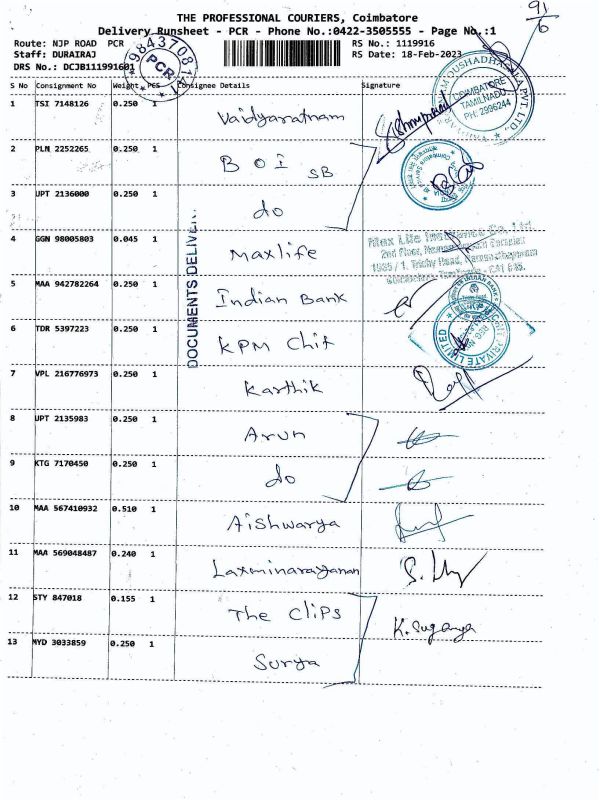 THE PROFESSIONAL COURIERS, Coimbatore
Delivery Runsheet - PCR - Phone No.:0422-3505555 - Page No.:1
91/6
Route: NJP ROAD PCR
RS No.: 1119916
Staff: DURAIRAJ
RS Date: 18-Feb-2023
DRS No.: DCJB111991601
984370814
PCR
S No Consignment No Weight PCS Consignee Details Signature
1 TSI 7148126 0.250 1 Vaidyaratnam
OUSHADHASALA PVT. LTD.,
COIMBATORE
TAMILNADU
PH: 2996244
2 PLN 2252265 0.250 1 BOI SB
3 UPT 2136000 0.250 1 do
4 GGN 98005803 0.045 1 Maxlife
Max Life Insurance Co. Ltd
2nd Floor,
1035 / 1, Trichy Road, Ramanathapuram
DOCUMENTS DELIVER
5 MAA 942782264 0.250 1 Indian Bank
6 TDR 5397223 0.250 1 KPM Chit
PRIVATE LIMITED
7 VPL 216776973 0.250 1 Karthik
8 UPT 2135983 0.250 1 Arun
9 KTG 7170450 0.250 1 do
10 MAA 567410932 0.510 1 Aishwarya
11 MAA 569048487 0.240 1 Laxminarayanan
12 STY 847018 0.155 1 The Clips K. Suganya
13 MYD 3033859 0.250 1 Surya